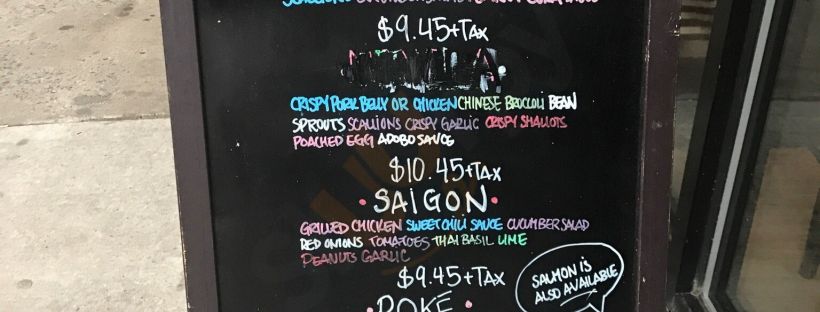 $9.45+TAX
CRISPY PORK BELLY OR CHICKEN CHINESE BROCCOLI BEAN
SPROUTS SCALLIONS CRISPY GARLIC CRISPY SHALLOTS
POACHED EGG ADOBO SAUCE
$10.45+TAX
• SAIGON •
GRILLED CHICKEN SWEET CHILI SAUCE CUCUMBER SALAD
RED ONIONS TOMATOES THAI BASIL LIME
PEANUTS GARLIC
$9.45+TAX
SALMON IS
ALSO AVAILABLE
• POKÉ •